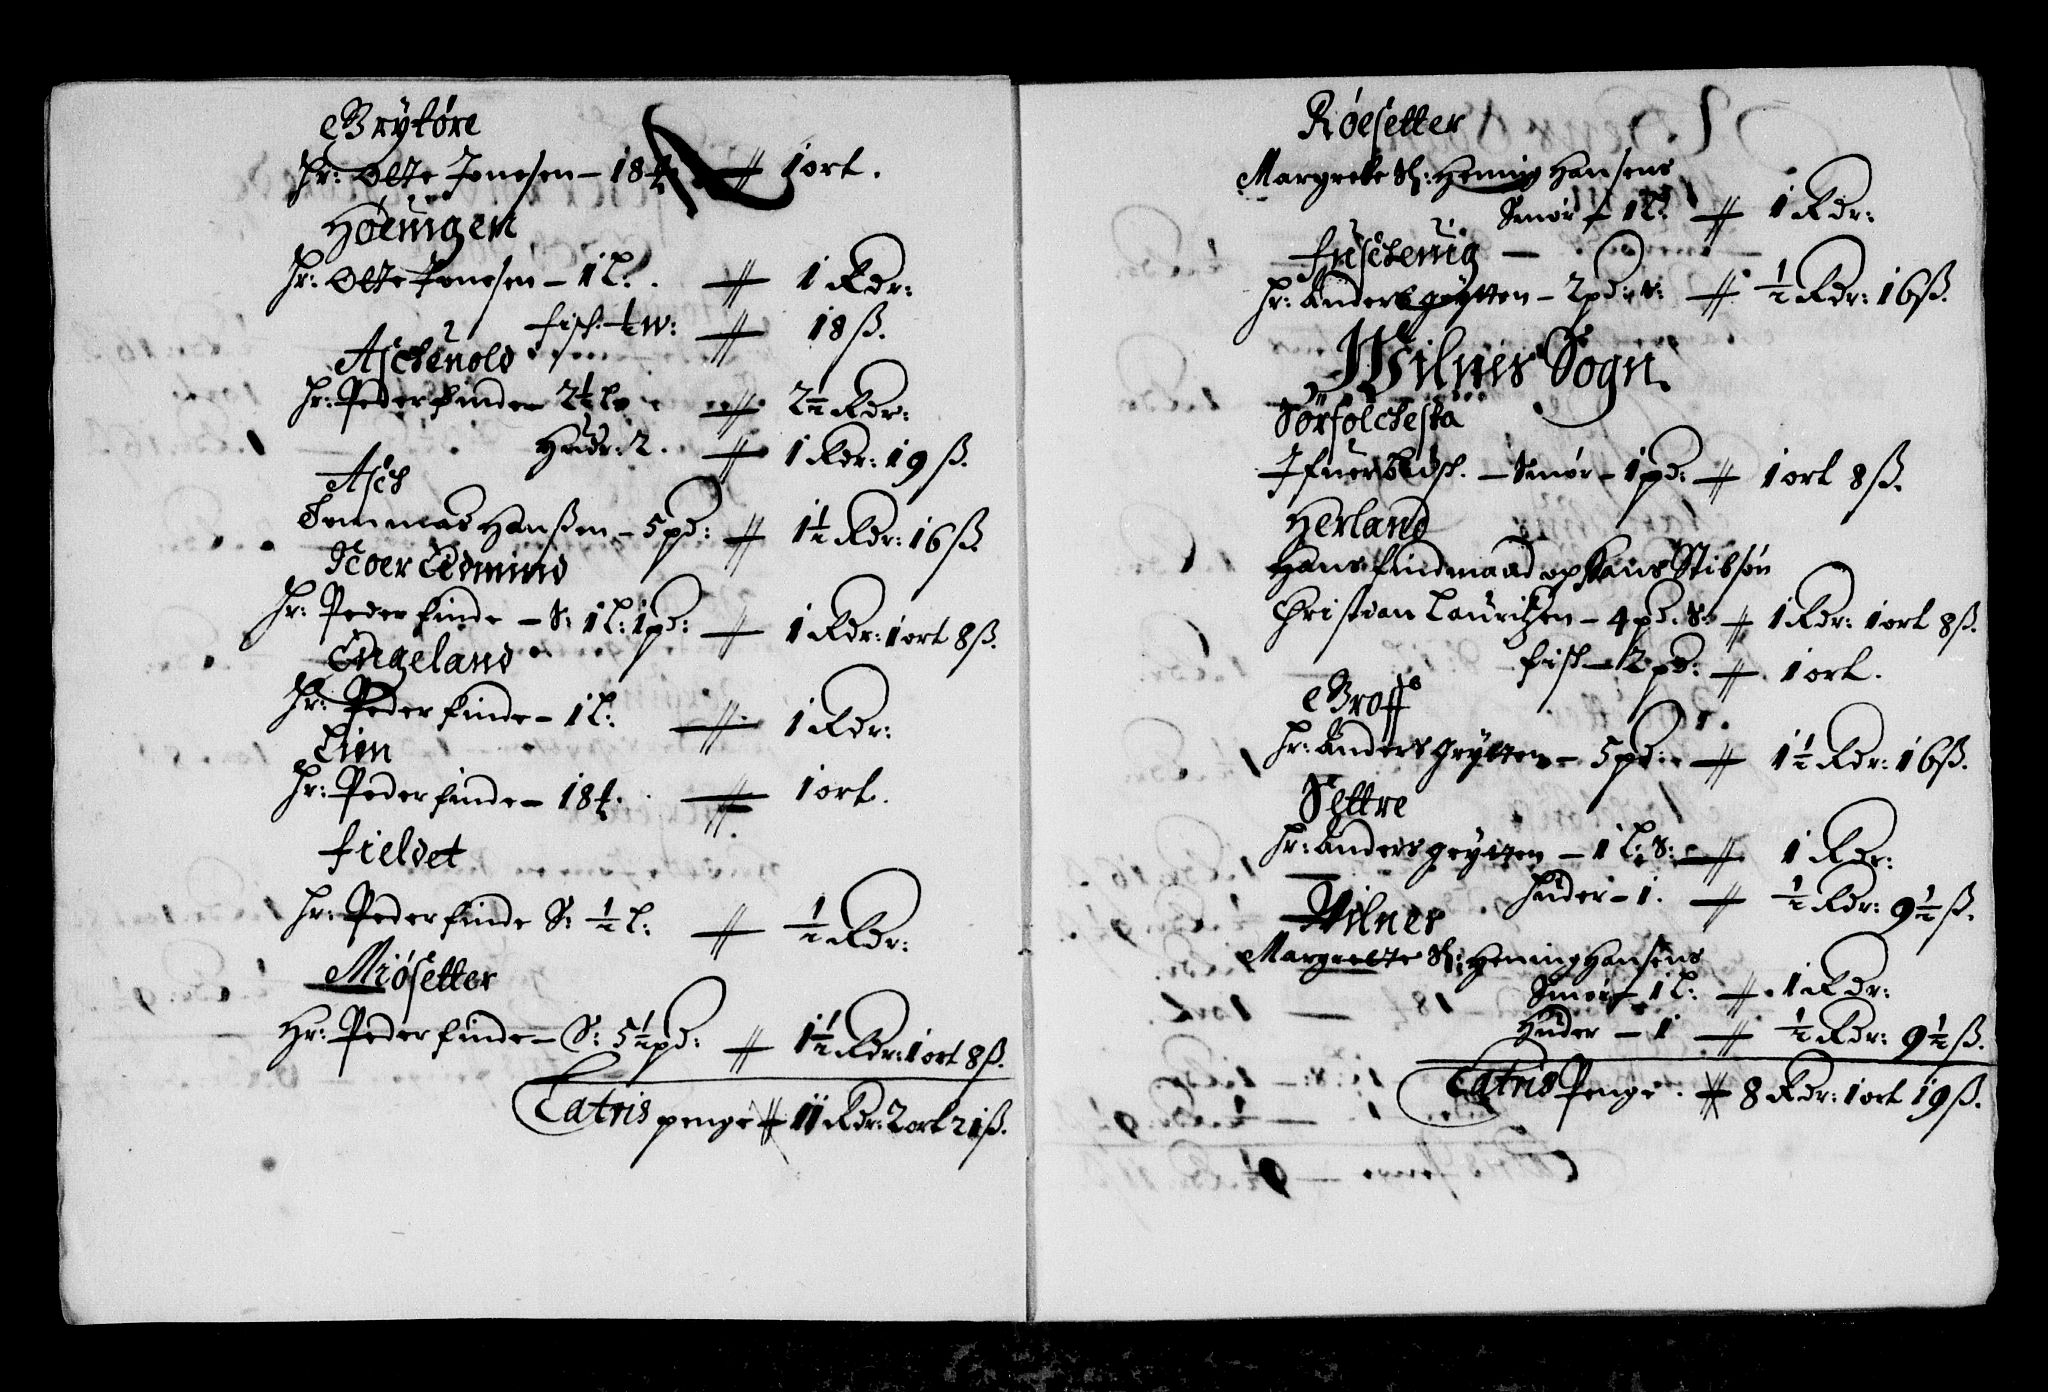 Brytøre
Hr: Oltte Jonesen – 18 # 1 ort.
Høeuigen
Hr: Oltte Jonesen – 1 L: # 1 Rdr:
fisch: ½ W: # 18 ß.
Ascheuold
Hr: Peder finde 2½ L # 2½ Rdr:
Hudr: 2. # 1 Rdr: 19 ß.
Asch
Tommas Hanßen – 5 pd: # 1½ Rdr: 16 ß.
Edmind
Hr: Peder finde – S: 1 L: 1 pd: # 1 Rdr: 1 ort 8 ß.
Engeland
Hr: Peder finde – 1 L: # 1 Rdr:
Lien
Hr: Peder finde – 18 # 1 ort.
fieldet
Hr: Peder finde S: ½ L: # ½ Rdr:
Miøsetter
Hr: Peder finde – S: 5½ pd: # 1½ Rdr: 1 ort 8 ß.
Latris penge # 11 Rdr: 2 ort 21 ß.
Røesetter
Margrete Sl: Hening Hansens
Smør – 1 L: # 1 Rdr:
fuscheuig
Hr: Anders grytten – 2 pd: S: # ½ Rdr: 16 ß.
Wilnes Sogn
Sørfolchesta
Ifuer – Smør – 1 pd: # 1 ort 8 ß.
Herland
Hans findmaad op Hans Stibsøn
Christian Lauritzen – 4 pd: S: # 1 Rdr: 1 ort 8 ß.
fisch – 2 pd: # 1 ort.
Broff
Hr: Anders grytten – 5 pd: # 1½ Rdr: 16 ß.
Settre
Hr: Anders grytten – 1 L: S: # 1 Rdr:
Huder – 1. # ½ Rdr: 9½ ß.
Wilnes
Margrette Sl: Hening Hansens
Smør – 1 L: # 1 Rdr:
Huder – 1 # ½ Rdr: 9½ ß.
Latris Penge # 8 Rdr: 1 ort 19 ß.